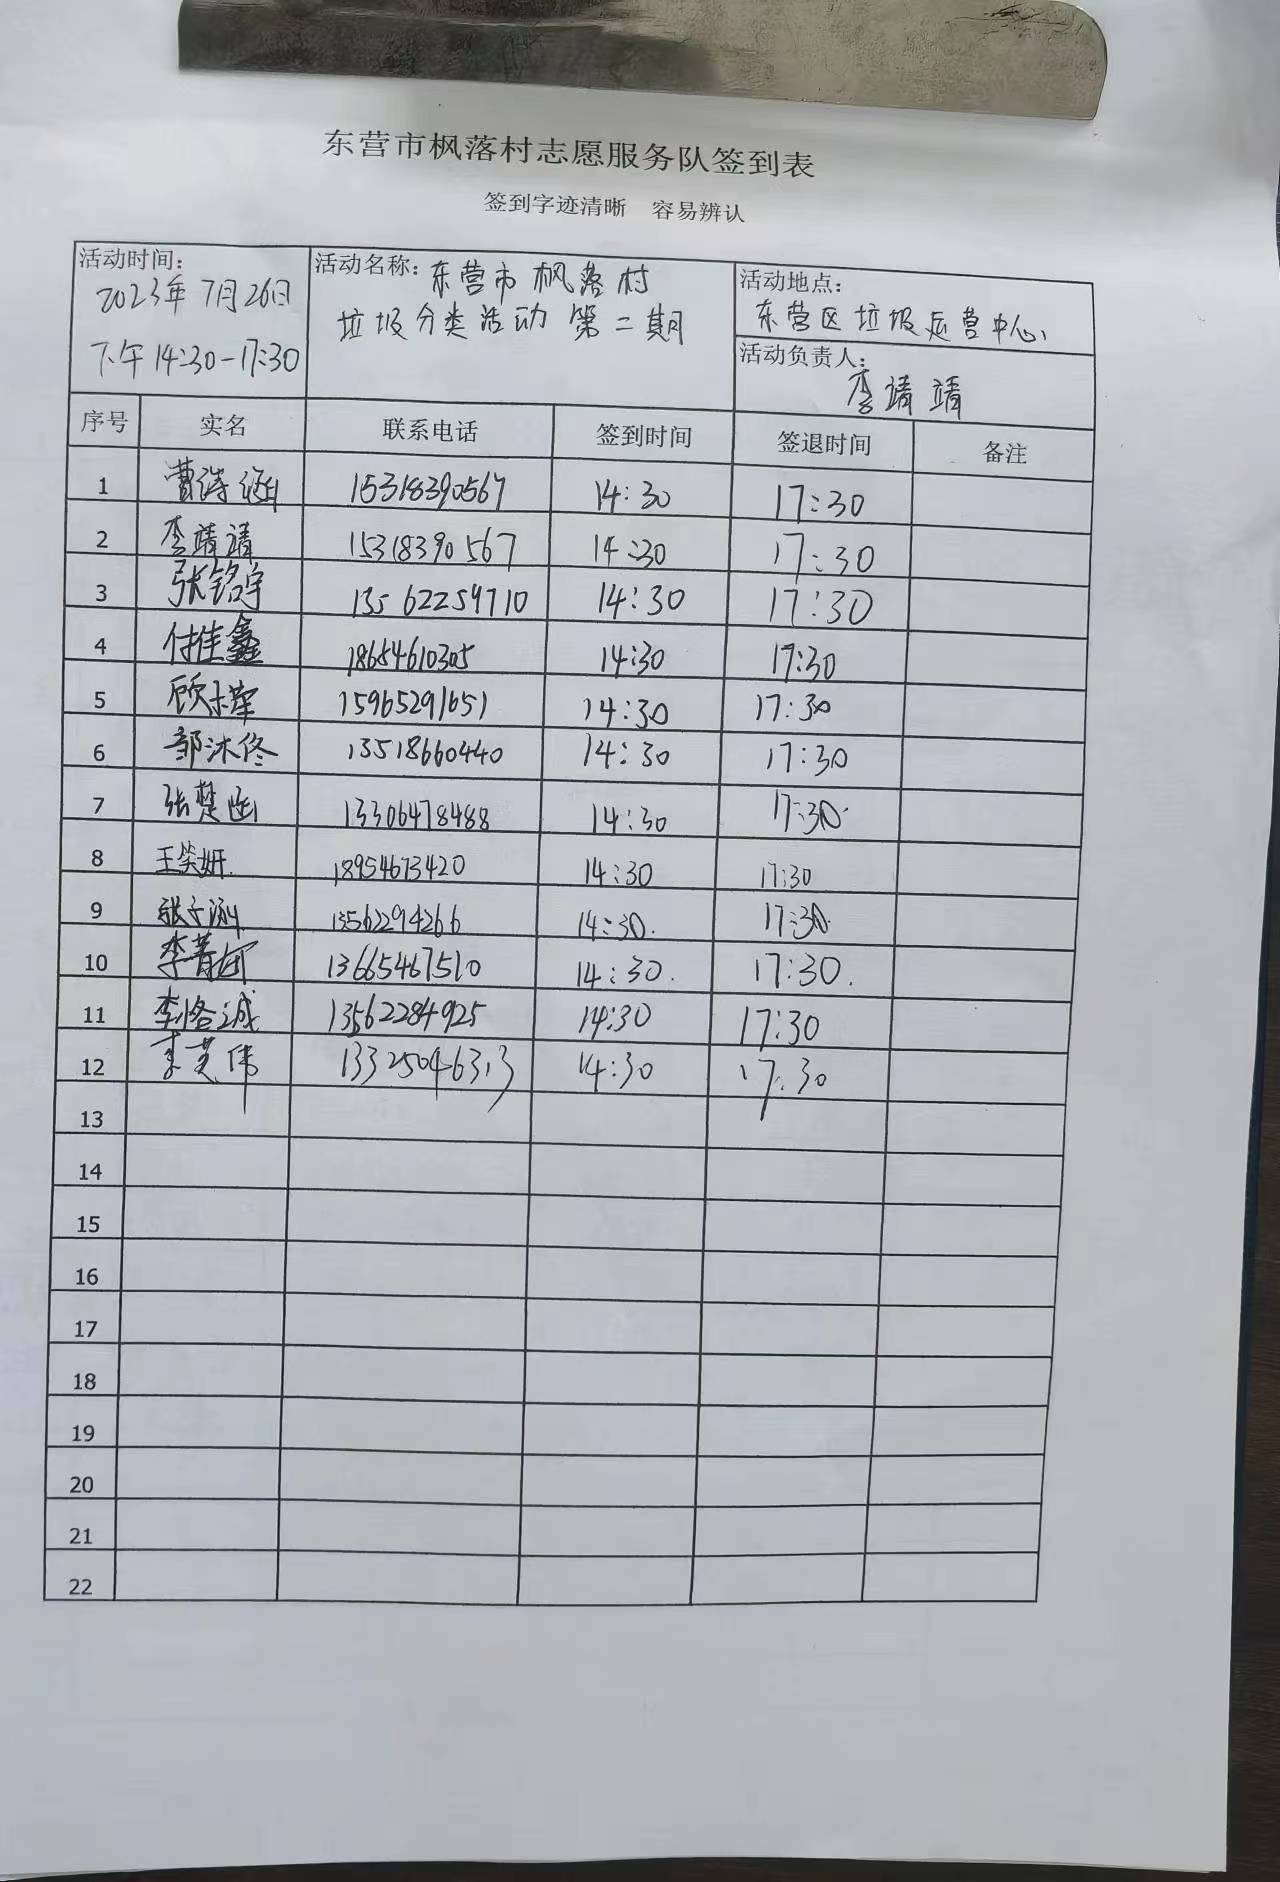 东营市枫落村志愿服务队签到表
签到字迹清晰 容易辨认
活动时间:
2023年7月26日
下午14:30-17:30
活动名称: 东营市枫落村
垃圾分类活动 第二期
活动地点:
东营区垃圾运营中心
活动负责人:
李靖靖
序号 实名 联系电话 签到时间 签退时间 备注
1 曹诗涵 15318390567 14:30 17:30
2 李靖靖 15318390567 14:30 17:30
3 张铭宇 13562259710 14:30 17:30
4 付佳鑫 18654610305 14:30 17:30
5 顾 15965291651 14:30 17:30
6 邹沐佟 13518660440 14:30 17:30
7 张楚函 13306478488 14:30 17:30
8 王笑妍 18954673420 14:30 17:30
9 张子涵 13562294266 14:30 17:30
10 李 13665467510 14:30 17:30
11 李恪诚 13562284925 14:30 17:30
12 李 伟 13325046313 14:30 17:30
13
14
15
16
17
18
19
20
21
22